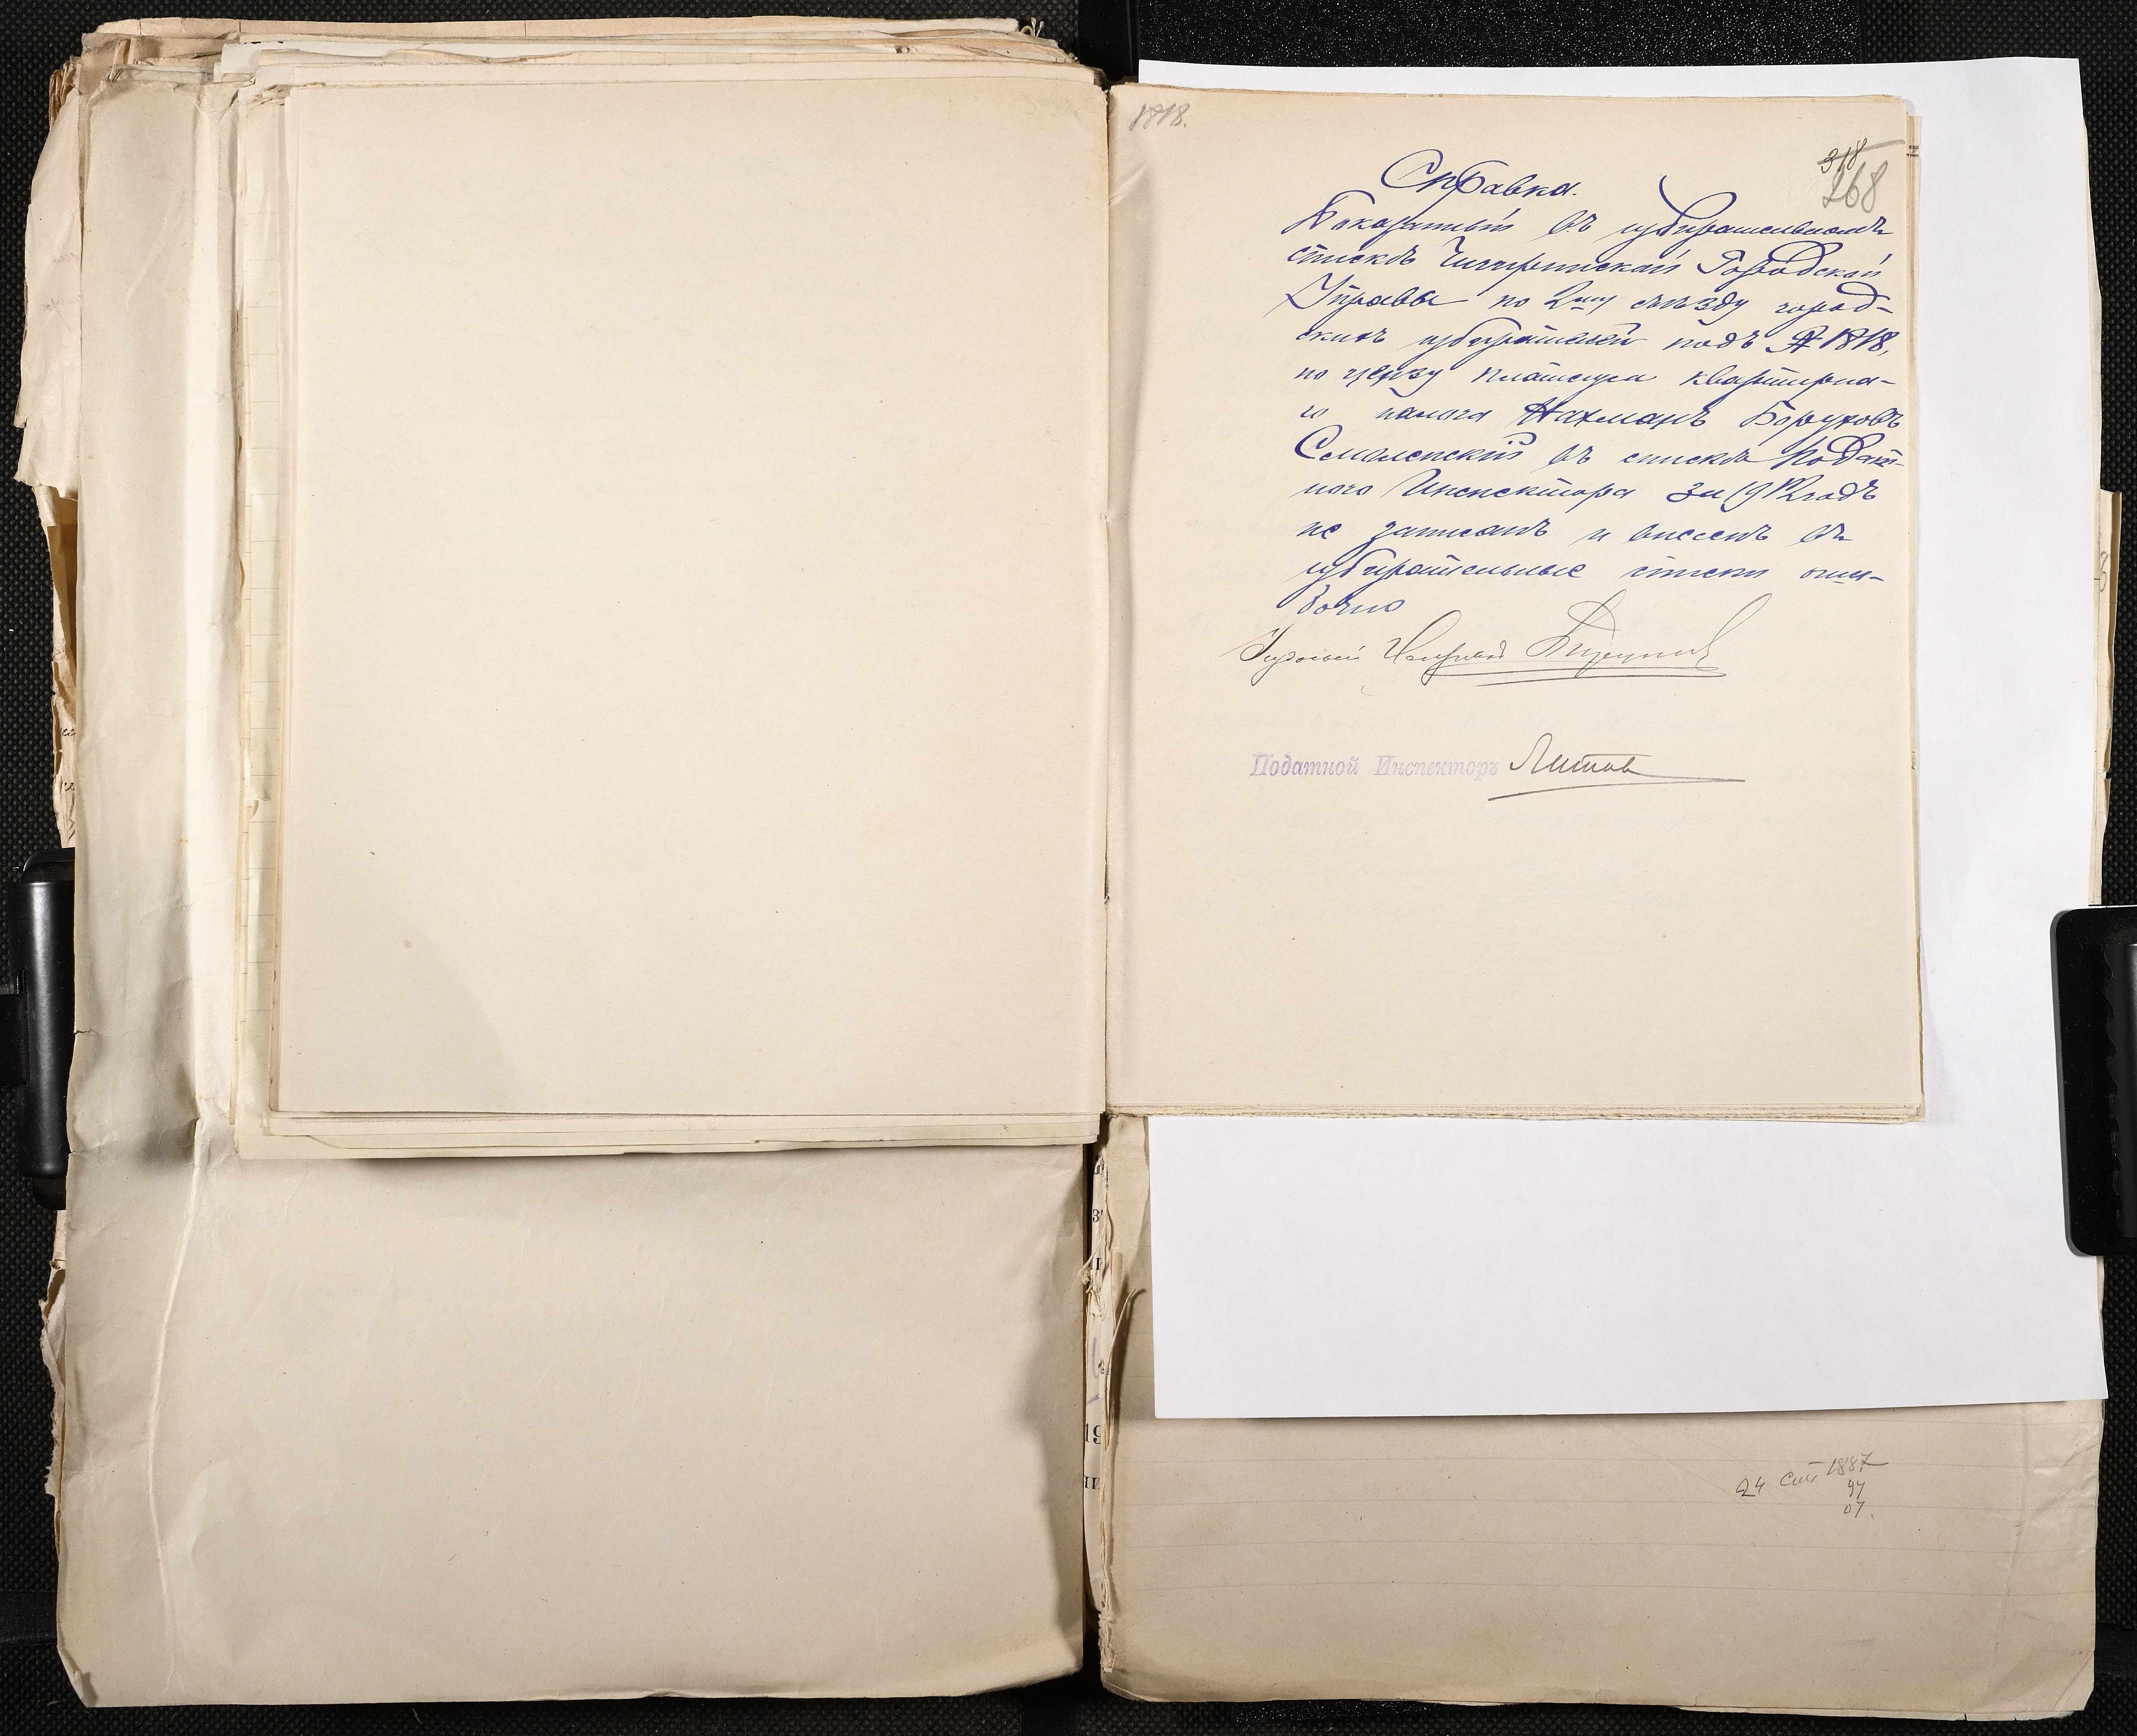 1818.
318
268
Справка.
Показанный въ избирательномъ
спискѣ Чигиринской Городской
Управы по 2му съѣзду город-
скихъ избирателей подъ № 1818,
по цензу плательщика квартирна-
го налога Нахманъ Боруховъ
Смоленскій въ спискѣ Подат-
ного Инспектора за 1912 годъ
не записанъ и внесенъ въ
избирательные списки оши-
бочно
Податной Инспекторъ
24 1887
97
07.